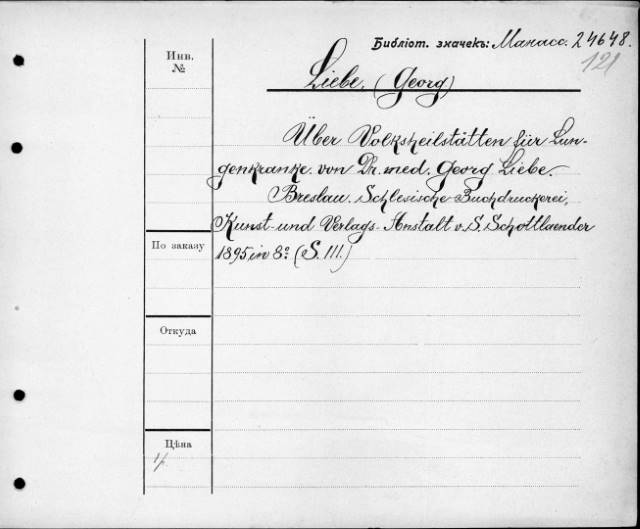 Библіот. значекъ: Манасс. 24648.
121
Инв.
№
Liebe. (Georg)
Über Volksheilstätten für Lun-
genkranke. von Dr. med. Georg Liebe.
Breslau. Schlesische Buchdruckerei,
Kunst- und Verlags-Anstalt v. S. Schottlaender
1895 in 8º (S. 111.)
По заказу
Откуда
Цѣна